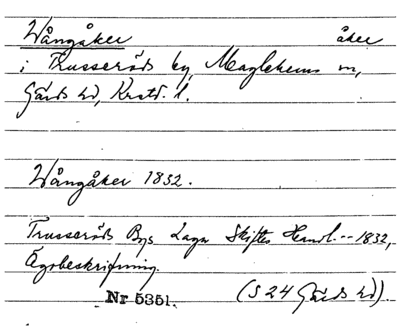 Wångåker åker
i Trusseröds by, Maglehems sn,
Gärds hd, Krstd. l.
Wångåker 1832.
Trusseröds Bys Laga Skiftes Handl. -- 1832,
Ägobeskrifning.
Nr 5351. (S 24 Gärds hd).